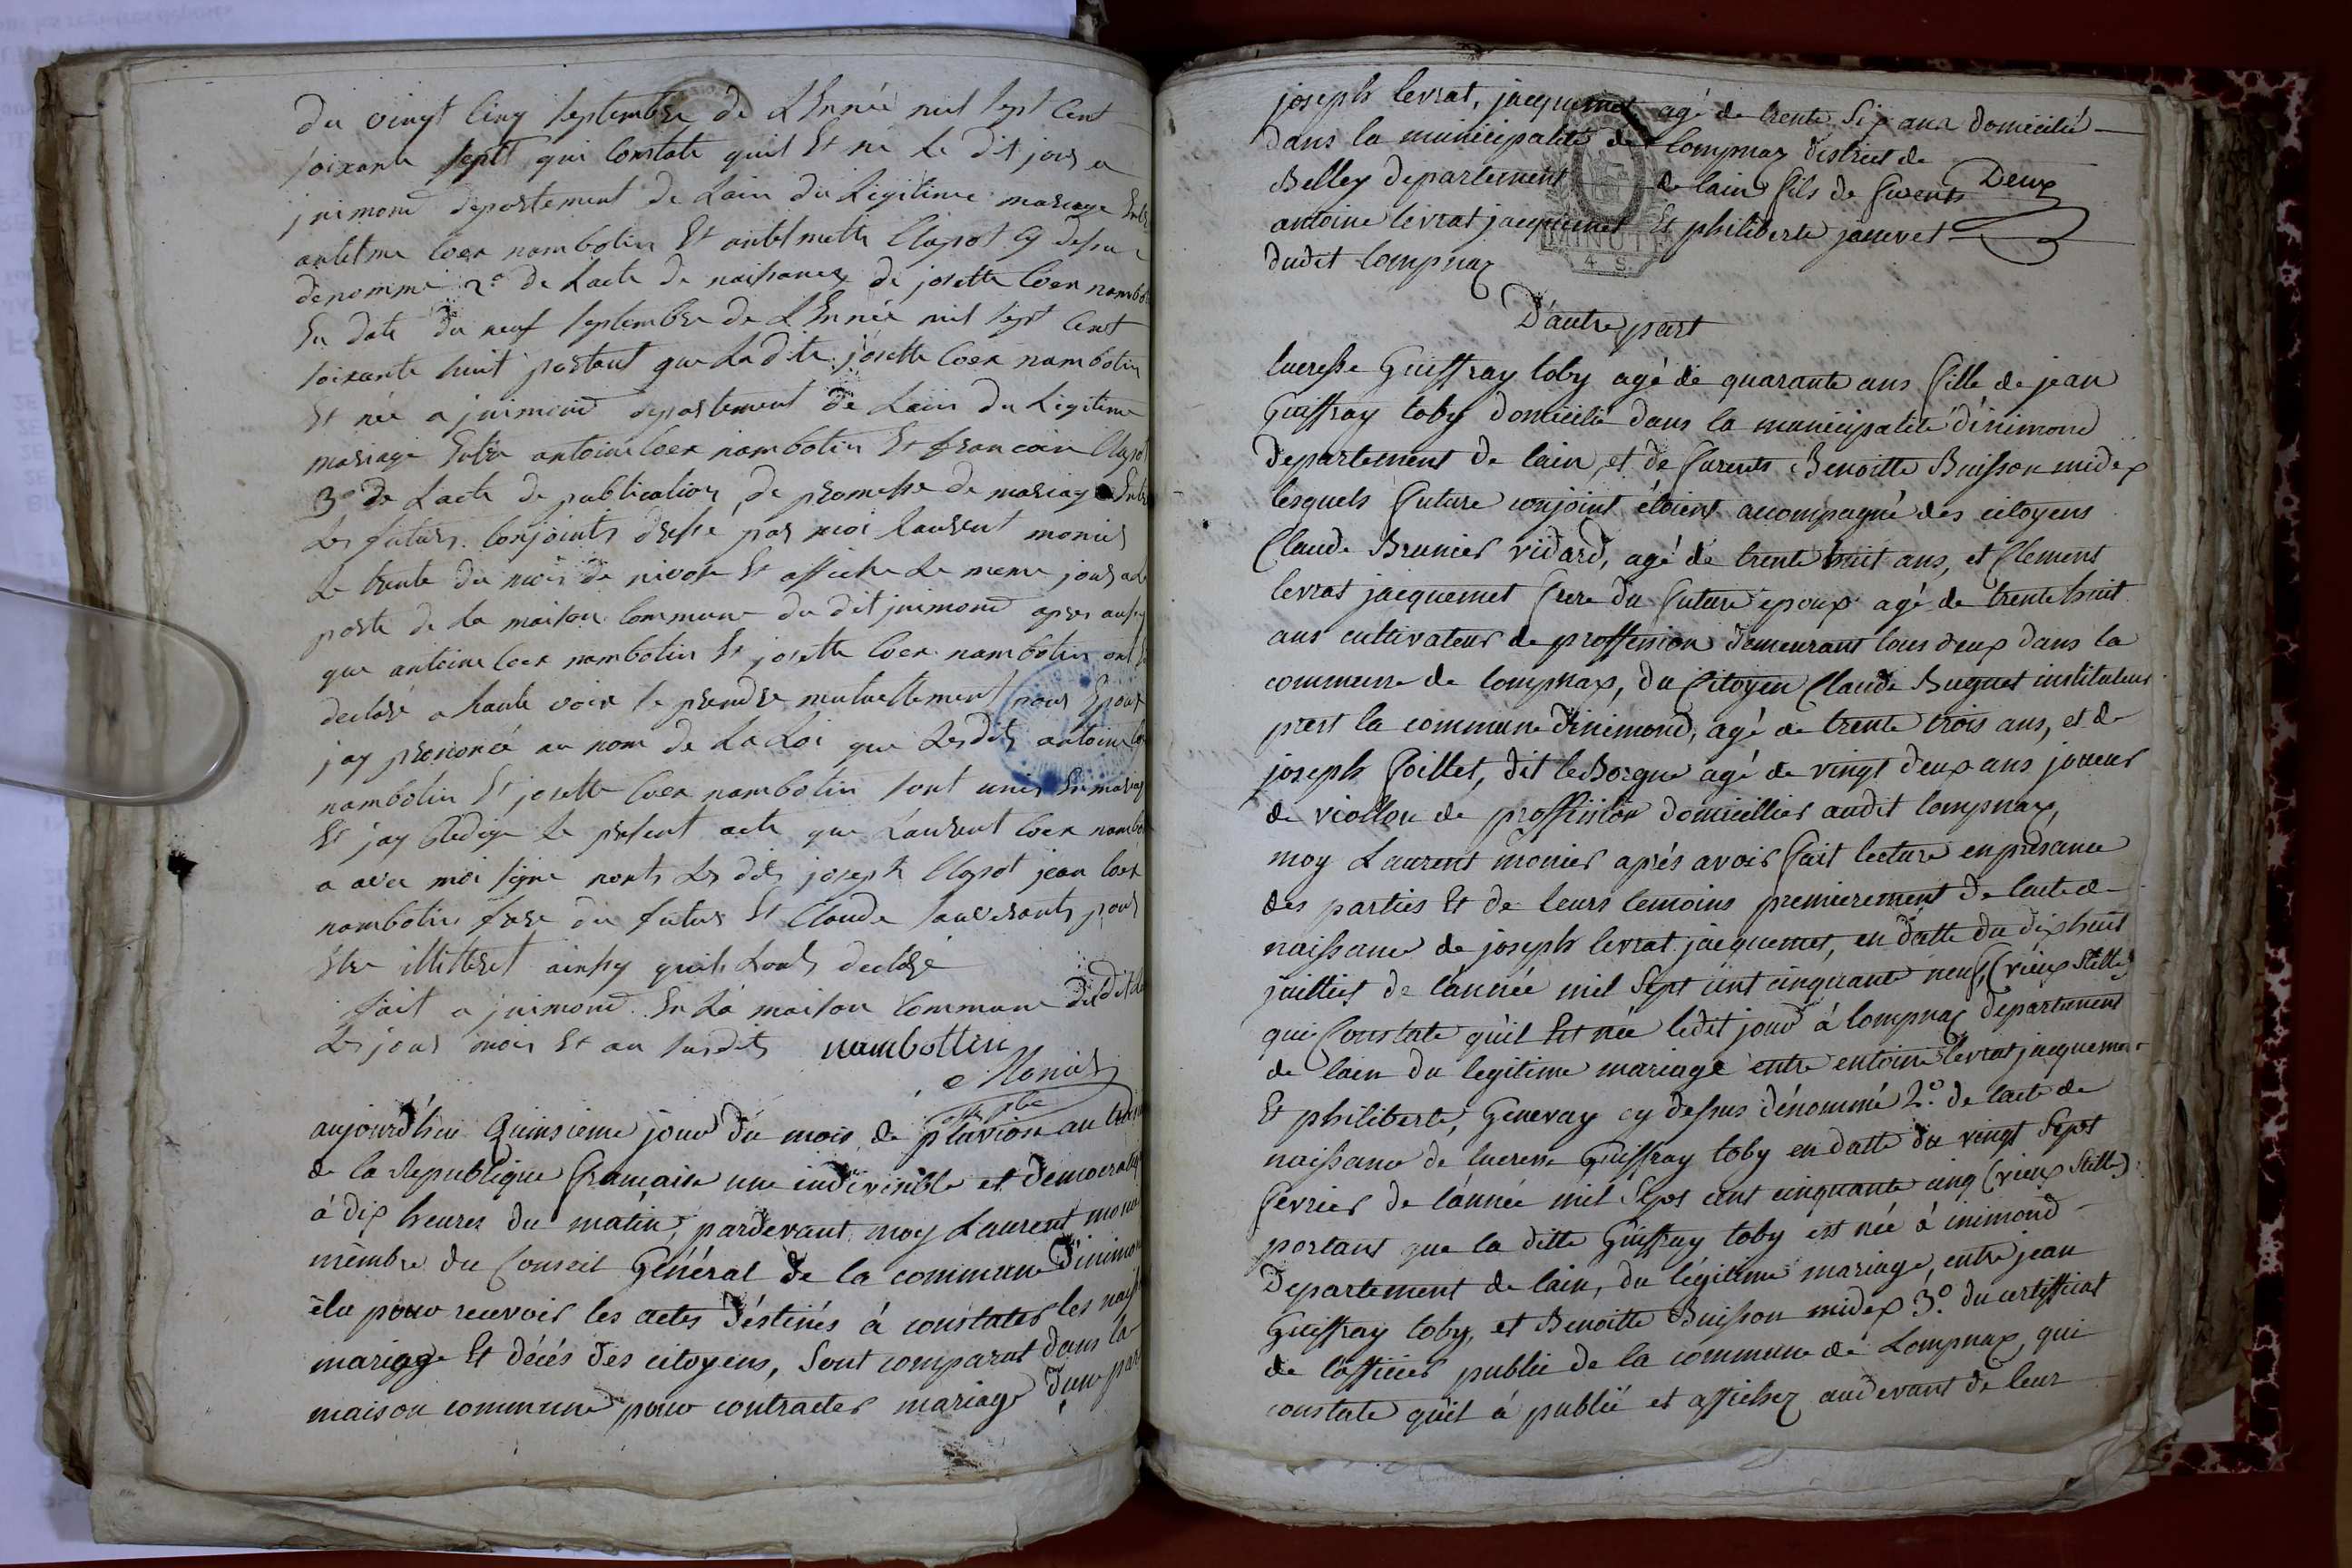 du vingt cinq septembre de L'Année mil sept cent
soixante sept qui constate quil Et né le dit jour a
jnimond departement de Lain du Legitime mariage Entre
antelme Coex nambotin Et antelmette Clapot cy dessu
denommé 2° de Lacte de naissance de josette Coex nambo
En date du neuf septembre de L'Année mil sept cent
soixante huit portant que La dite josette Coex nambotin
Et née a jnimond departement de Lain du Legitime
mariage Entre antoine Coex nambotin Et francoise Clapot
3° de Lacte de publication de promesse de mariage Entre
Les futurs conjoints dressé par moi Laurent monier
Le trente du mois de nivose Et affiche Le meme jour a La
porte de La maison commune du dit jnimond apres aussy
que antoine Coex nambotin Et josette Coex nambotin ont
declaré a haute voix se prendre mutuellement pour Epoux
jay prononcé au nom de La Loi que Lesdits antoine Coex
nambotin Et josette Coex nambotin sont unis En mariage
Et jay Redigé Le present acte que Laurent Coex nambo
a avec moi signé nonts Les dits joseph Clapot jean Coex
nambotin frere du futur Et Claude pour
Etre illitteret ainssy quils Lonts declaré
fait a jnimond En La maison commune du dit Lieu
Les jour mois Et an susdits nambottin
Monier
aujourd'hui Quinsieme jour du mois de pluviose an trois
de la Republique francaise une indivisible et democratiq
à dix heures du matin, pardevant moy Laurent monie
membre du Conseil Général de la commune d'inimon
élu pour recevoir les actes déstinés à constater les naiss
mariage Et décés des citoyens, sont comparut dans la
maison commune pour contracter mariage d'une part
joseph levrat, jacquemet agé de trente six ans domicilié
dans la municipalité de Lompnaz district de
Belley departement de lain fils de fuents Deux
antoine levrat jacquemet Et philiberte janevet
dudit Lompnaz
D'autre part
lucresse Guiffray toby agé de quarante ans fille de jean
Guiffray toby domicilié dans la municipalité d'inimond
departement de lain, et de furents Benoitte Buisson midex
lesquels future conjoint étoient accompagné des citoyens
Claude Brunier vidard, agé de trente huit ans, et Clement
levrat jacquemet frere du future epoux agé de trente huit
ans cultivateur de proffession demeurant tous deux dans la
commune de lompnax, du Citoyen Claude Buguet instituteur
prest la commune d'inimond, agé de trente trois ans, et de
joseph foillet, dit leBorgne agé de vingt deux ans joueur
de viollon de proffession domicillier audit lompnax,
moy Laurent monier aprés avoir fait lecture en présance
des parties Et de leurs temoins premierement de lacte de
naissance de joseph levrat jacquemet, en datte du dixhuit
juilliet de l'année mil sept cent cinquante neuf, (vieux stille)
qui Constate qu'il Est née ledit jour à lompnaz departement
de lain du legitime mariage entre entoine levrat jacquemet
Et philiberte, Genevay cy dessus dénommé 2.° de lacte de
naissance de lucresse Guiffray toby en datte du vingt sept
fevrier de l'année mil sept cent cinquante cinq (vieux stille)
portant que la ditte Guiffray toby est née à inimond
departement de lain, du légitime mariage, entre jean
Guiffray toby, et Benoitte Buisson midex 3.° du certifficat
de l'officier public de la commune de Lompnax, qui
constate qu'il à publié et affichez audevant de leur